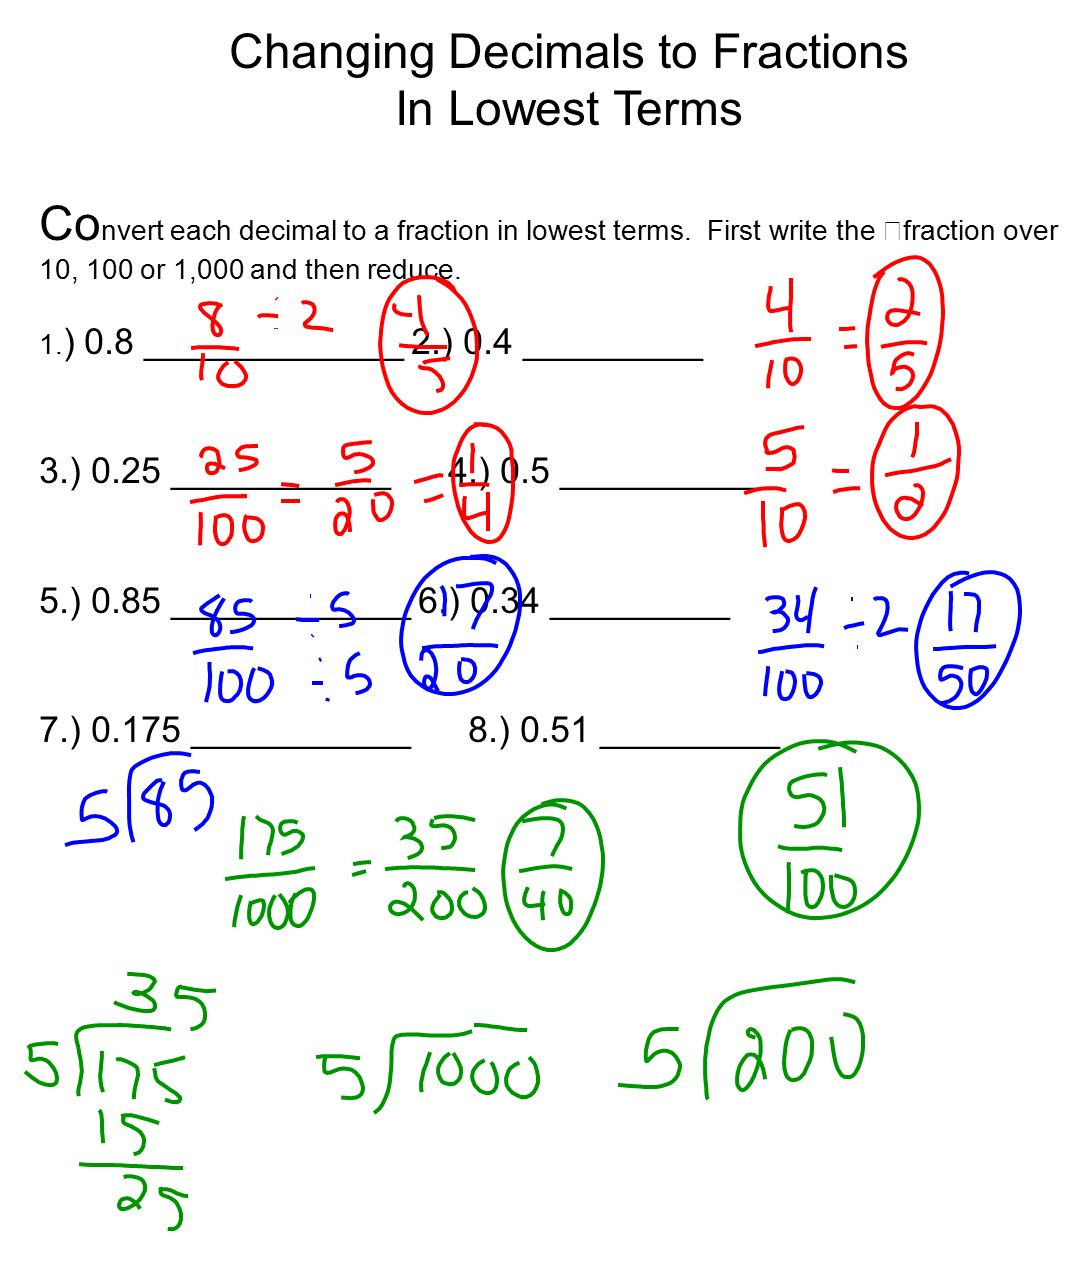 Changing Decimals to Fractions
In Lowest Terms
Convert each decimal to a fraction in lowest terms. First write the □fraction over
10, 100 or 1,000 and then reduce.
1.) 0.8 ____________ 8/10 ÷ 2 4/5 2.) 0.4 _________ 4/10 = 2/5
3.) 0.25 ___________ 25/100 = 5/20 = 1/4 4.) 0.5 __________ 5/10 = 1/2
5.) 0.85 ____________ 85/100 ÷ 5 ÷ 5 17/20 6.) 0.34 _________ 34/100 ÷ 2 17/50
7.) 0.175 ___________ 8.) 0.51 _________
5)85 175/1000 = 35/200 7/40 51/100
35
5)175 5)1000 5)200
15
25